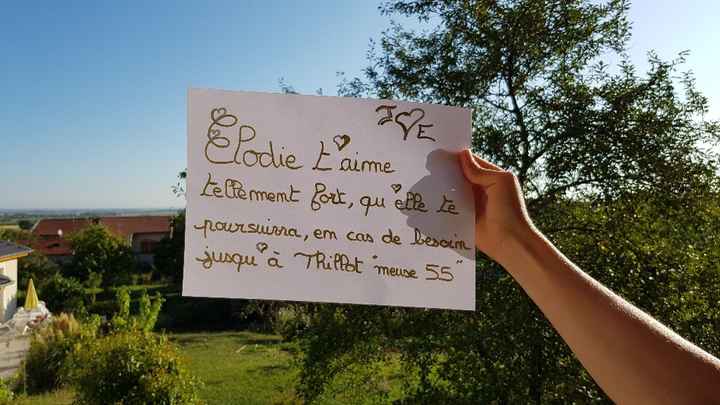 J ♥ E
Elodie t'aime
tellement fort, qu'elle te
poursuivra, en cas de besoin
jusqu'à Thillot "meuse 55"